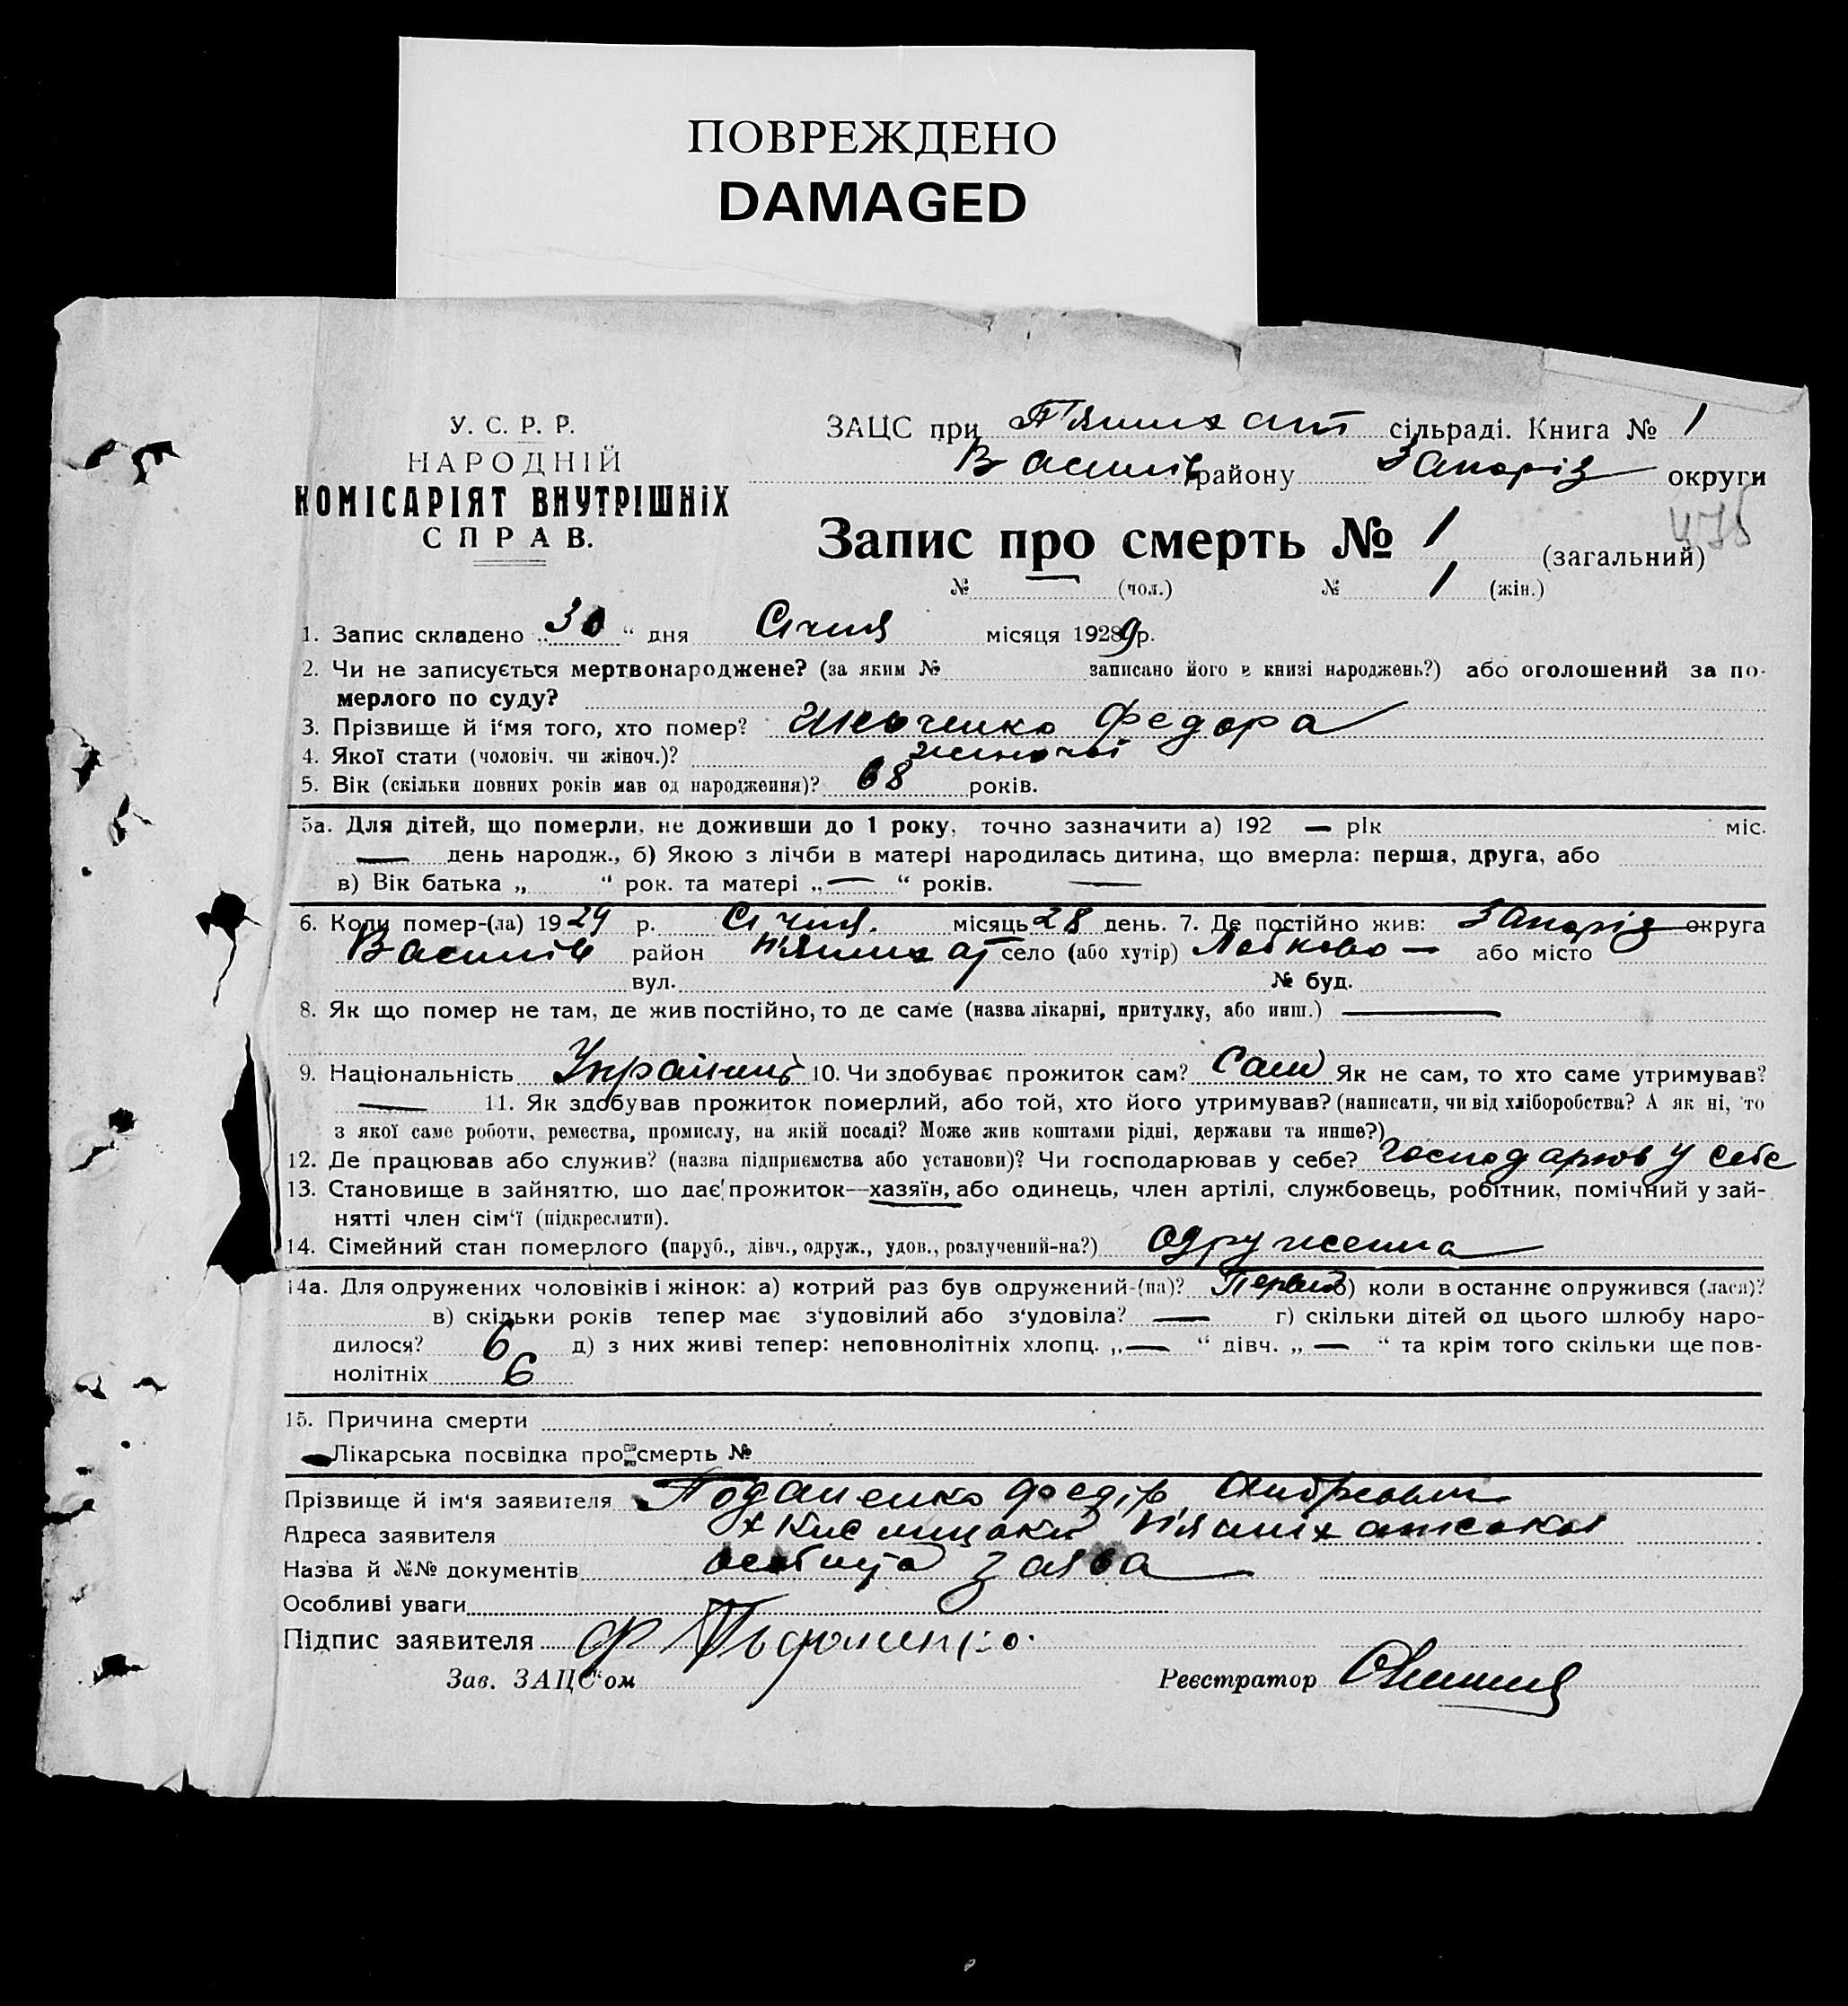 ПОВРЕЖДЕНО
DAMAGED
У. С. Р. Р.
НАРОДНІЙ
КОМІСАРІЯТ ВНУТРІШНІХ
СПРАВ.
ЗАЦС при П'яттихат сільраді. Книга № 1
Василів району Запоріз округи
Запис про смерть № 1 (загальний)
№ — (чол.) № 1 (жін.)
1. Запис складено „30“ дня Січня місяця 1929 р.
2. Чи не записується мертвонароджене? (за яким № записано його в книзі народжень?) або оголошений за по-
мерлого по суду?
3. Прізвище й і'мя того, хто помер? Федора
4. Якої стати (чоловіч. чи жіноч.)? жіночої
5. Вік (скільки повних років мав од народження)? 68 років.
5а. Для дітей, що померли, не доживши до 1 року, точно зазначити а) 192 — рік міс.
— день народж., б) Якою з лічби в матері народилась дитина, що вмерла: перша, друга, або
в) Вік батька „ “ рок. та матері „—“ років. —
6. Коли помер-(ла) 1929 р. Січня. місяць 28 день. 7. Де постійно жив: Запоріз округа
Василів район П'яттихат село (або хутір) — або місто
вул. № буд.
8. Як що помер не там, де жив постійно, то де саме (назва лікарні, притулку, або инш.) —
9. Національність 10. Чи здобуває прожиток сам? Сам Як не сам, то хто саме утримував?
— 11. Як здобував прожиток померлий, або той, хто його утримував? (написати, чи від хліборобства? А як ні, то
з якої саме роботи, ремества, промислу, на якій посаді? Може жив коштами рідні, держави та инше?)
12. Де працював або служив? (назва підприємства або установи)? Чи господарював у себе? господарюв у себе
13. Становище в зайняттю, що дає прожиток—хазяїн, або одинець, член артілі, службовець, робітник, помічний у зай-
нятті член сім'ї (підкреслити).
14. Сімейний стан померлого (паруб., дівч., одруж., удов., розлучений-на?) одружена
14а. Для одружених чоловіків і жінок: а) котрий раз був одружений-(на)? Первий б) коли в останнє одружився (лася)?
в) скільки років тепер має з'удовілий або з'удовіла? — г) скільки дітей од цього шлюбу наро-
дилося? 6 д) з них живі тепер: неповнолітніх хлопц. „—“ дівч. „—“ та крім того скільки ще пов-
нолітніх 6
15. Причина смерти
Лікарська посвідка про смерть №
Прізвище й ім'я заявителя Федір Андреевич
Адреса заявителя х
Назва й №№ документів заява
Особливі уваги
Підпис заявителя Ф
Зав. ЗАЦС“ом Реєстратор